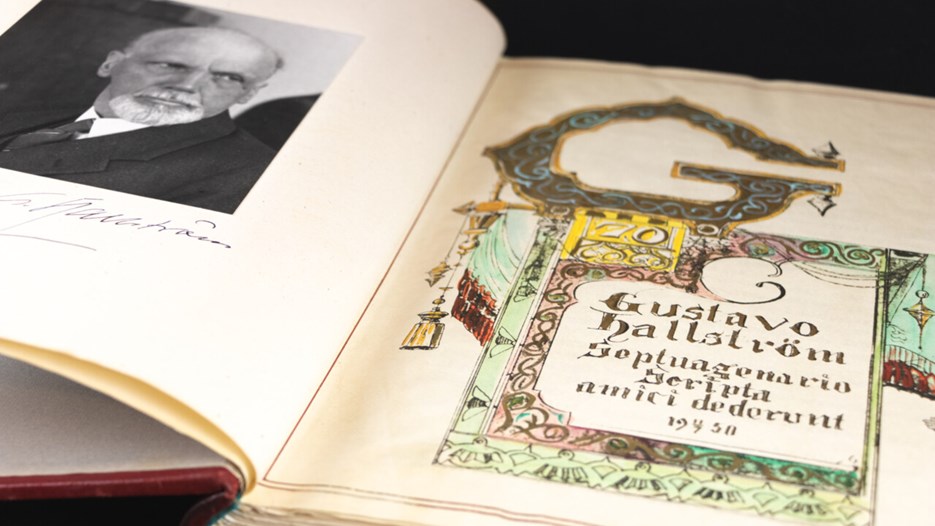 Hallström
G
70
Gustavo
hallström
Septuagenario
Scripta
amici dederunt
1950